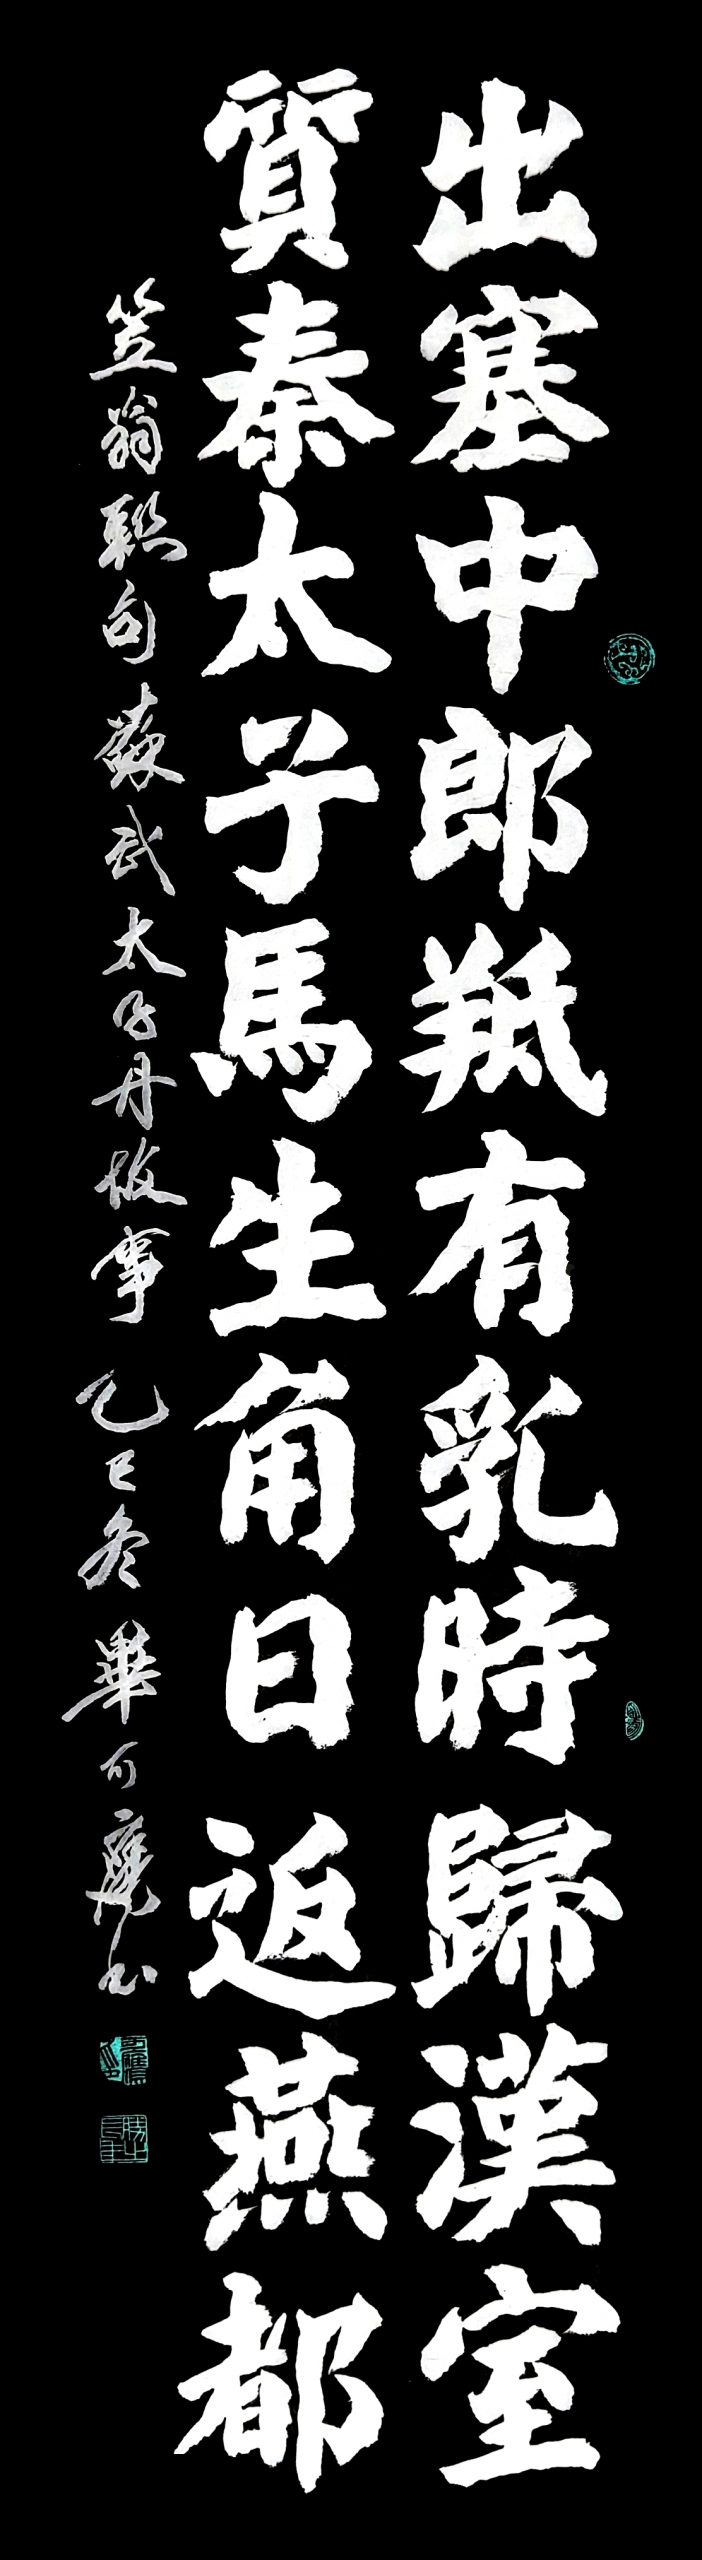 出塞中郎羝有乳時歸漢室
質秦太子馬生角日返燕都
笠翁聯句蘇武太子丹故事 乙巳冬 畢可鷹书